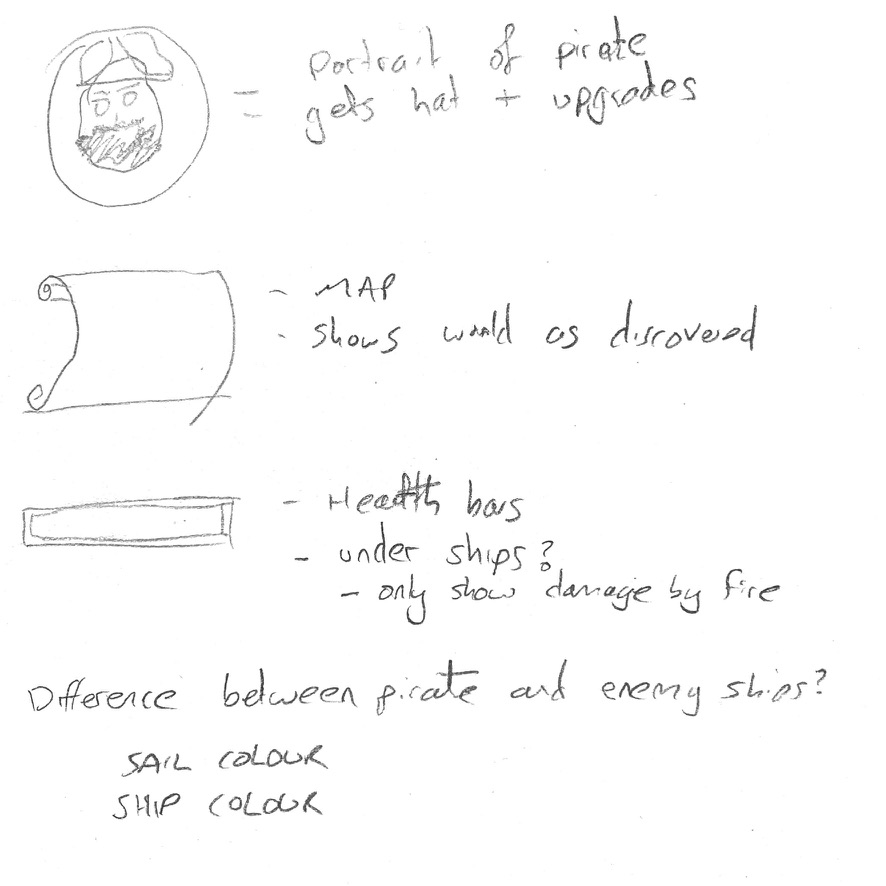 = Portrait of pirate
gets hat + upgrades
- MAP
- shows world as discovered
- Health bars
- under ships?
- only show damage by fire
Difference between pirate and enemy ships?
SAIL COLOUR
SHIP COLOUR